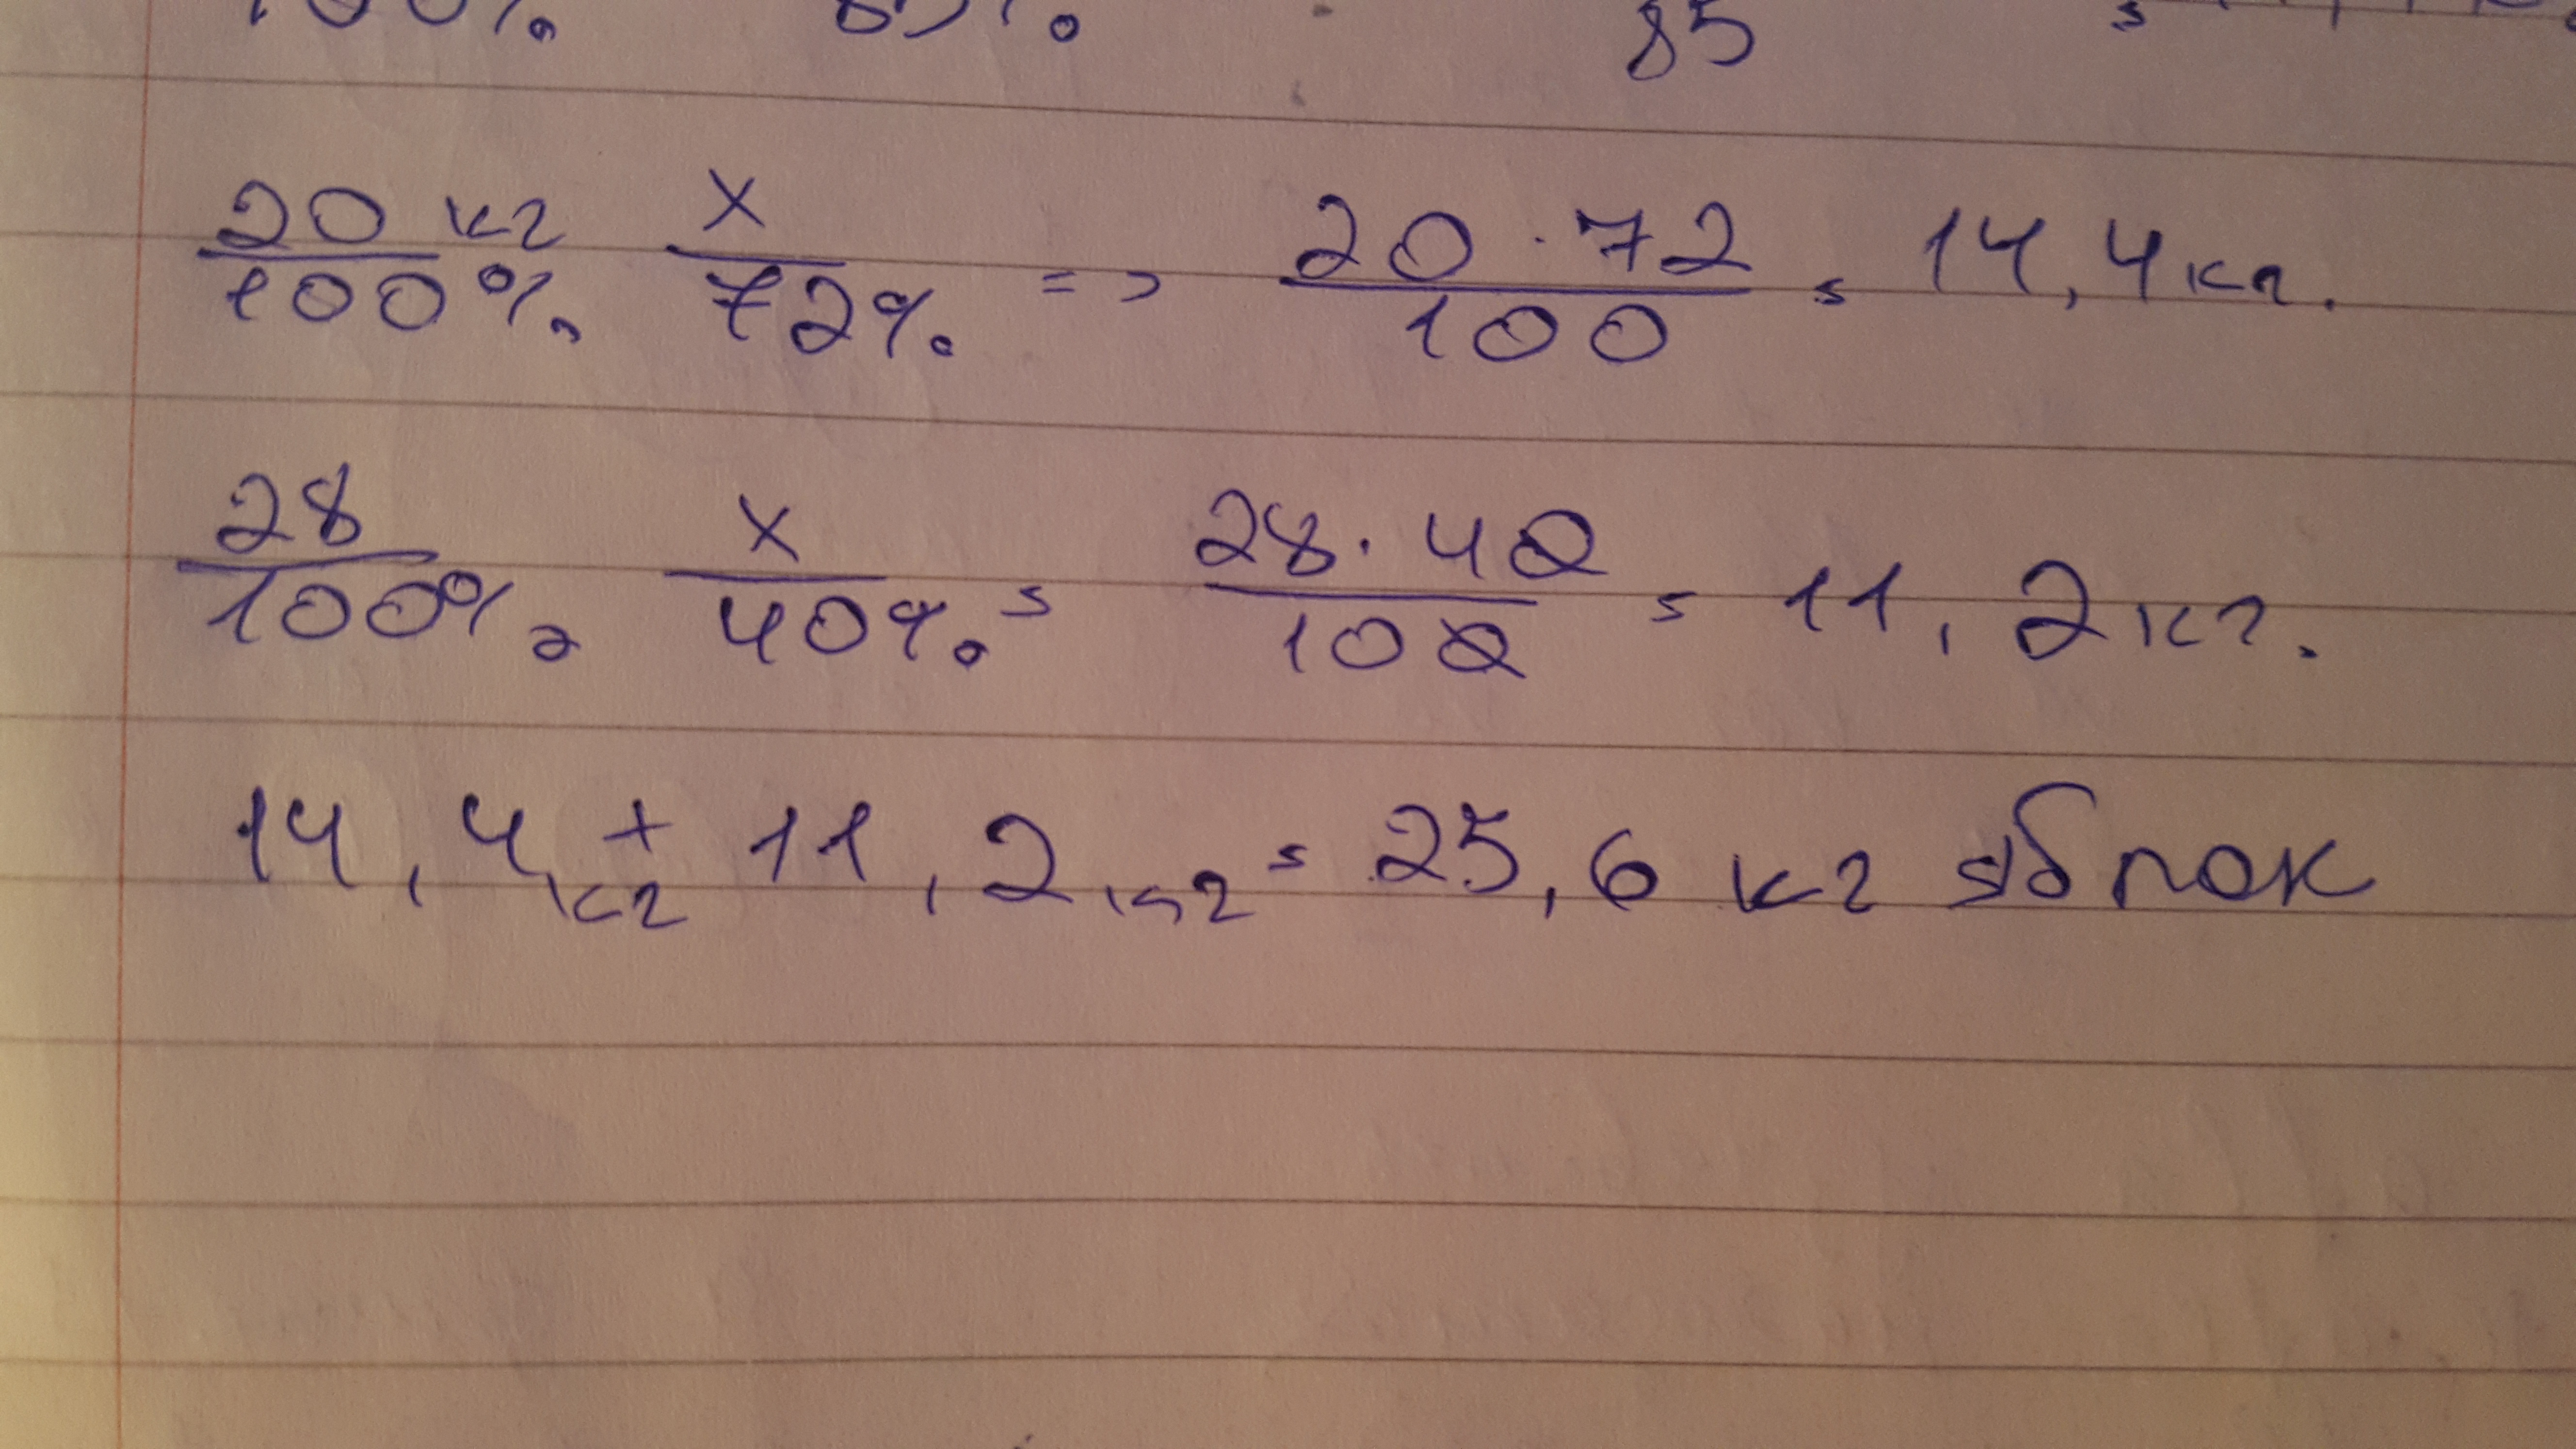 100% 85% 85
20 кг/100% x/72% => 20 · 72/100 = 14,4 кг.
28/100% x/40% = 28 · 40/100 = 11,2 кг.
14,4 кг + 11,2 кг = 25,6 кг яблок